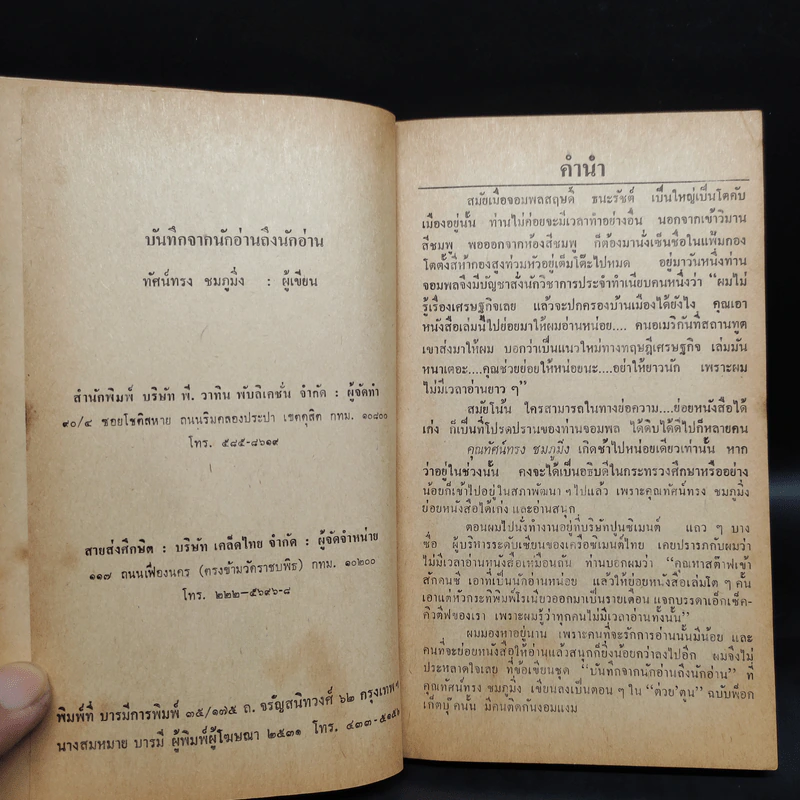 บันทึกจากนักอ่านถึงนักอ่าน
ทัศน์ทรง ชมภูมิ่ง : ผู้เขียน
สำนักพิมพ์ บริษัท พี. วาทิน พับลิเคชั่น จำกัด : ผู้จัดทำ
๙๐/๔ ซอยโชคสหาย ถนนริมคลองประปา เขตดุสิต กทม. ๑๐๘๐๐
โทร. ๕๘๕-๘๖๑๙
สายส่งศึกษิต : บริษัท เคล็ดไทย จำกัด : ผู้จัดจำหน่าย
๑๑๗ ถนนเฟื่องนคร (ตรงข้ามวัดราชบพิธ) กทม. ๑๐๒๐๐
โทร. ๒๒๒-๕๖๙๖-๘
พิมพ์ที่ บารมีการพิมพ์ ๓๕/๑๗๕ ถ. จรัญสนิทวงศ์ ๖๒ กรุงเทพฯ
นางสมหมาย บารมี ผู้พิมพ์ผู้โฆษณา ๒๕๓๑ โทร. ๔๓๓-๕๑๕๖
คำนำ
สมัยเมื่อจอมพลสฤษดิ์ ธนะรัชต์ เป็นใหญ่เป็นโตคับ
เมืองอยู่นั้น ท่านไม่ค่อยจะมีเวลาทำอย่างอื่น นอกจากเข้าวิมาน
สีชมพู พอออกจากห้องสีชมพู ก็ต้องมานั่งเซ็นชื่อในแฟ้มกอง
โตตั้งสี่ห้ากองสูงท่วมหัวอยู่เต็มโต๊ะไปหมด อยู่มาวันหนึ่งท่าน
จอมพลจึงมีบัญชาสั่งนักวิชาการประจำทำเนียบคนหนึ่งว่า "ผมไม่
รู้เรื่องเศรษฐกิจเลย แล้วจะปกครองบ้านเมืองได้ยังไง คุณเอา
หนังสือเล่มนี้ไปย่อยมาให้ผมอ่านหน่อย.... คนอเมริกันที่สถานทูต
เขาส่งมาให้ผม บอกว่าเป็นแนวใหม่ทางทฤษฎีเศรษฐกิจ เล่มมัน
หนาเตอะ....คุณช่วยย่อยให้หน่อยนะ...อย่าให้ยาวนัก เพราะผม
ไม่มีเวลาอ่านยาว ๆ"
สมัยโน้น ใครสามารถในทางย่อความ....ย่อยหนังสือได้
เก่ง ก็เป็นที่โปรดปรานของท่านจอมพล ได้ดิบได้ดีไปก็หลายคน
คุณทัศน์ทรง ชมภูมิ่ง เกิดช้าไปหน่อยเดียวเท่านั้น หาก
ว่าอยู่ในช่วงนั้น คงจะได้เป็นอธิบดีในกระทรวงศึกษาหรืออย่าง
น้อยก็เข้าไปอยู่ในสภาพัฒนา ๆ ไปแล้ว เพราะคุณทัศน์ทรง ชมภูมิ่ง
ย่อยหนังสือได้เก่ง และอ่านสนุก
ตอนผมไปนั่งทำงานอยู่ที่บริษัทปูนซิเมนต์ แถว ๆ บาง
ซื่อ ผู้บริหารระดับเซียนของเครือซิเมนต์ไทย เคยปรารภกับผมว่า
ไม่มีเวลาอ่านหนังสือเหมือนกัน ท่านบอกผมว่า "คุณหาสต๊าฟเข้า
สักคนซี เอาที่เป็นนักอ่านหน่อย แล้วให้ย่อยหนังสือเล่มโต ๆ คั้น
เอาแต่หัวกะทิพิมพ์โรเนียวออกมาเป็นรายเดือน แจกบรรดาเอ็กเซ็ค-
คิวตีฟของเรา เพราะผมรู้ว่าทุกคนไม่มีเวลาอ่านทั้งนั้น"
ผมมองหาอยู่นาน เพราะคนที่จะรักการอ่านนั้นมีน้อย และ
คนที่จะย่อยหนังสือให้อ่านแล้วสนุกก็ยิ่งน้อยกว่าลงไปอีก ผมจึงไม่
ประหลาดใจเลย ที่ข้อเขียนชุด "บันทึกจากนักอ่านถึงนักอ่าน" ที่
คุณทัศน์ทรง ชมภูมิ่ง เขียนลงเป็นตอน ๆ ใน "ต่วย'ตูน" ฉบับพ็อก
เก็ตบุ๊คนั้น มีคนติดกันงอมแงม